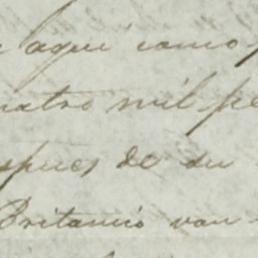 aqui como
uatro mil pe
spues de su
Britanico van